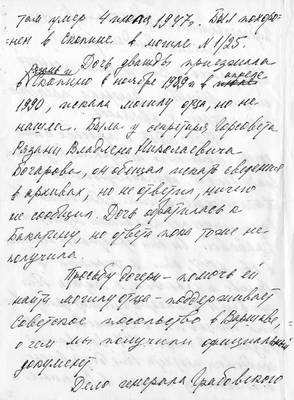 там умер 4 июля 1947 г. Был похоро-
нен в Скопине в могиле № 1/25.
Дочь дважды приезжала
Рязань и
в Скопино в ноябре 1989 и в апреле
1990, искала могилу отца, но не
нашла. Была у секретаря Горсовета
Рязани Владлена Николаевича
Бочарова, он обещал искать сведения
в архивах, но не ответил, ничего
не сообщил. Дочь обратилась к
Бакатину, но ответа пока тоже не
получила.
Просьбу дочери – помочь ей
найти могилу отца – поддерживает
Советское посольство в Варшаве,
о чем мы получили официальный
документ.
Дело генерала Грабовского